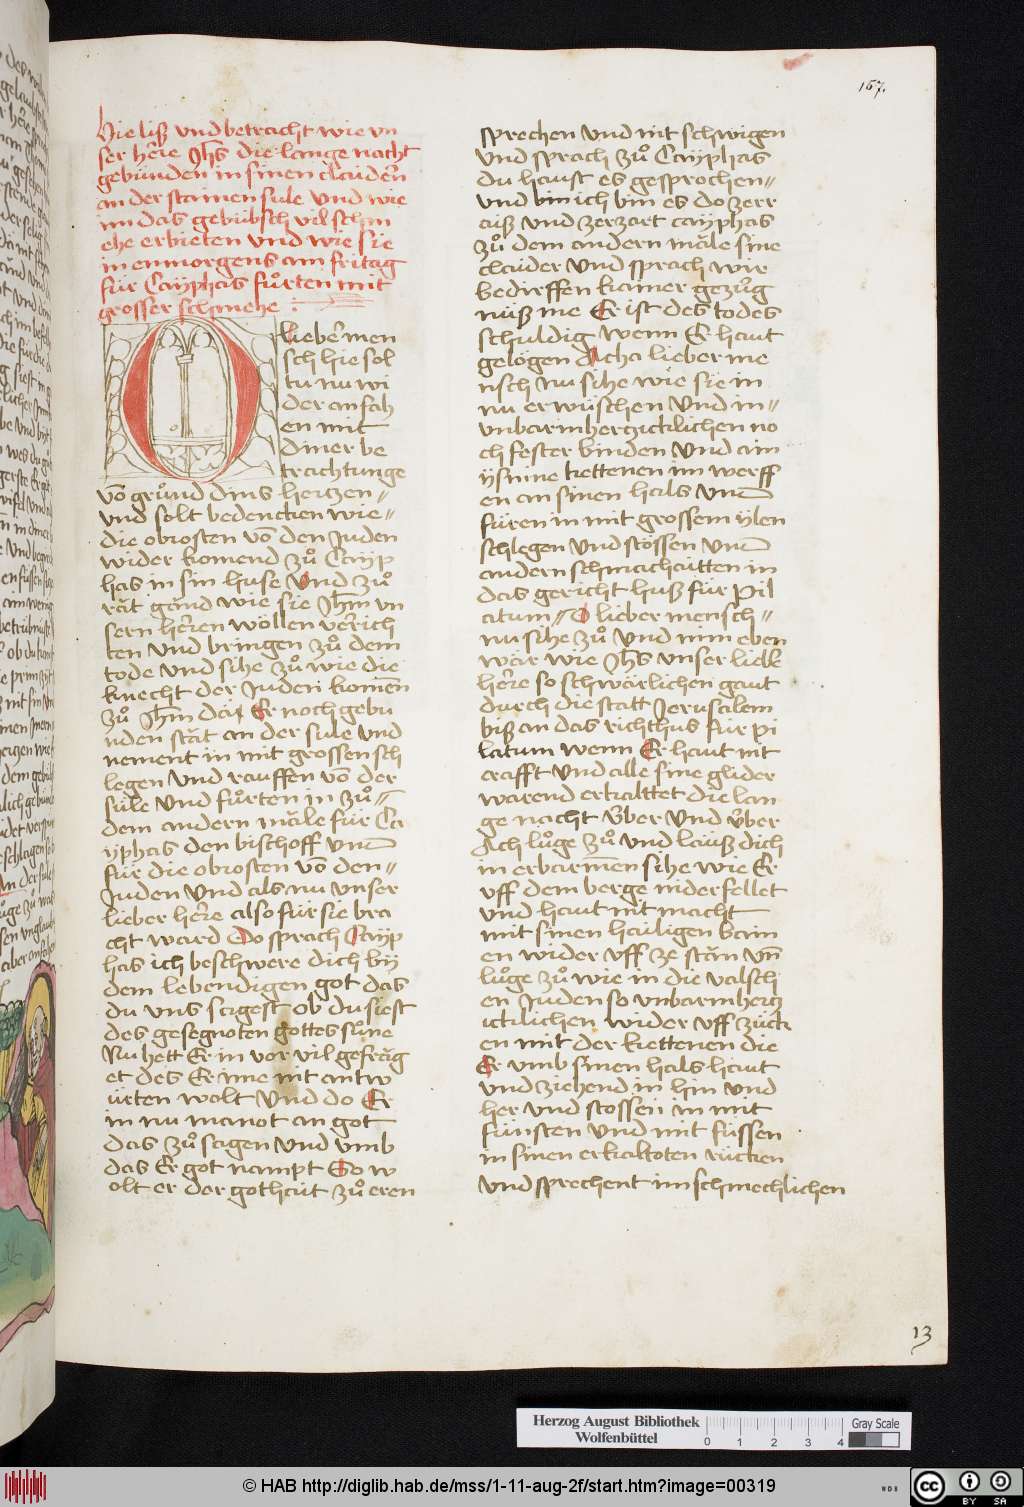 167.
Hie liß vnd betracht wie vn
ser hr̄re Jh̄s die lange nacht
gebunden in sinen claidern
an der stainen sule Vnd wie
im das gebúbsch vil schm
ehe erbieten vnd wie sie
in enmorgens am fritag
für Cayphas fuͦrten mit
grosser schmehe :
O liebr̄ men
sch hie sol
tu nu wi
der anfah
en mit
diner be
trachtunge
vō gruͦnd dins hertzen〃
vnd solt bedencken wie〃
die obrosten vō den Juden
wider komend zuͦ Cayp
has in sin huse Vnd zuͦ
răt gănd wie sie Jh̄m vn
sern hr̄ren wöllen vr̄rich
ten vnd bringen zuͦ dem
tode vnd sihe zuͦ wie die
knecht der Juden komen̄
zuͦ Jh̄m dăz Er noch gebu
nden stăt an der sule vnd
nement in mit grossen sch
legen Vnd rauffen vō der
sule Vnd fuͦrten in zuͦ〃
dem andern măle für Ca
yphas den bischoff vnd
für die obrosten vō den〃
Juden Vnd als nu vnser
lieber hr̄re also für sie bra
cht ward Do sprach Cayp
has ich beschwere dich by
dem lebendigen got das
du vns sagest ob du siest
des gesegnoten gottes suͦne
Nu hett Er in vor vil gefrăg
et des Er ime nit antw
ürten wolt Vnd do Er
in nu manot an got
das zuͦ sagen Vnd vmb
das Er got nampt Do w
olt er dar gothait zuͦ eren
sprechen vnd nit schwigen
Vnd sprach zuͦ Cayphas
du haust es gesprochen〃
vnd bin ich bin es do zerr
aiß vnd zerzart cayphas
zuͦ dem andern măle sine
claider Vnd sprach wir
bedirffen kainer gezuͦg
nuß me Er ist des todes
schuldig wenn Er haut
gelogen Acha lieber me
nsch nu sihe wie sie in
nu erwüschen Vnd in〃
vnbarmhertzicklichen no
ch fester binden Vnd ain
ysnine kettenen im werff
en an sinen hals vnd
füren in mit grossem ylen
schlegen Vnd stössen vnd
andern schmachaitten in
das gericht huß für pil
atum〃 O lieber mensch〃
nu sihe zuͦ Vnd nim eben
wär wie Jh̄s vnser liebe
hr̄re so schwärlichen gaut
durch die statt Jerusalem
biß an das richthus für pi
latum wenn Er haut nit
crafft Vnd alle sine glider
warend erkalttet die lan
ge nacht v̊ber Vnd v̊ber
Ach luͦge zuͦ vnd lauß dich
in erbarmen̄ sihe wie Er
vff dem berge niderfellet
vnd haut nit macht
mit sinen hailigen bain
en wider vff ze stăn vn̄
luͦge zuͦ wie in die valsch
en Juden so vnbarmhertz
icklichen wider vff zuck
en mit der kettenen die
Er vmb sinen hals haut
vnd ziehend in hin vnd
her vnd stossen in mit
fúnsten vnd mit fússen
in sinen erkaltoten rücken
vnd sprechent im schmechlichen
13
Herzog August Bibliothek
Wolfenbüttel
0 1 2 3 4
Gray Scale
© HAB http://diglib.hab.de/mss/1-11-aug-2f/start.htm?image=00319
cc BY SA